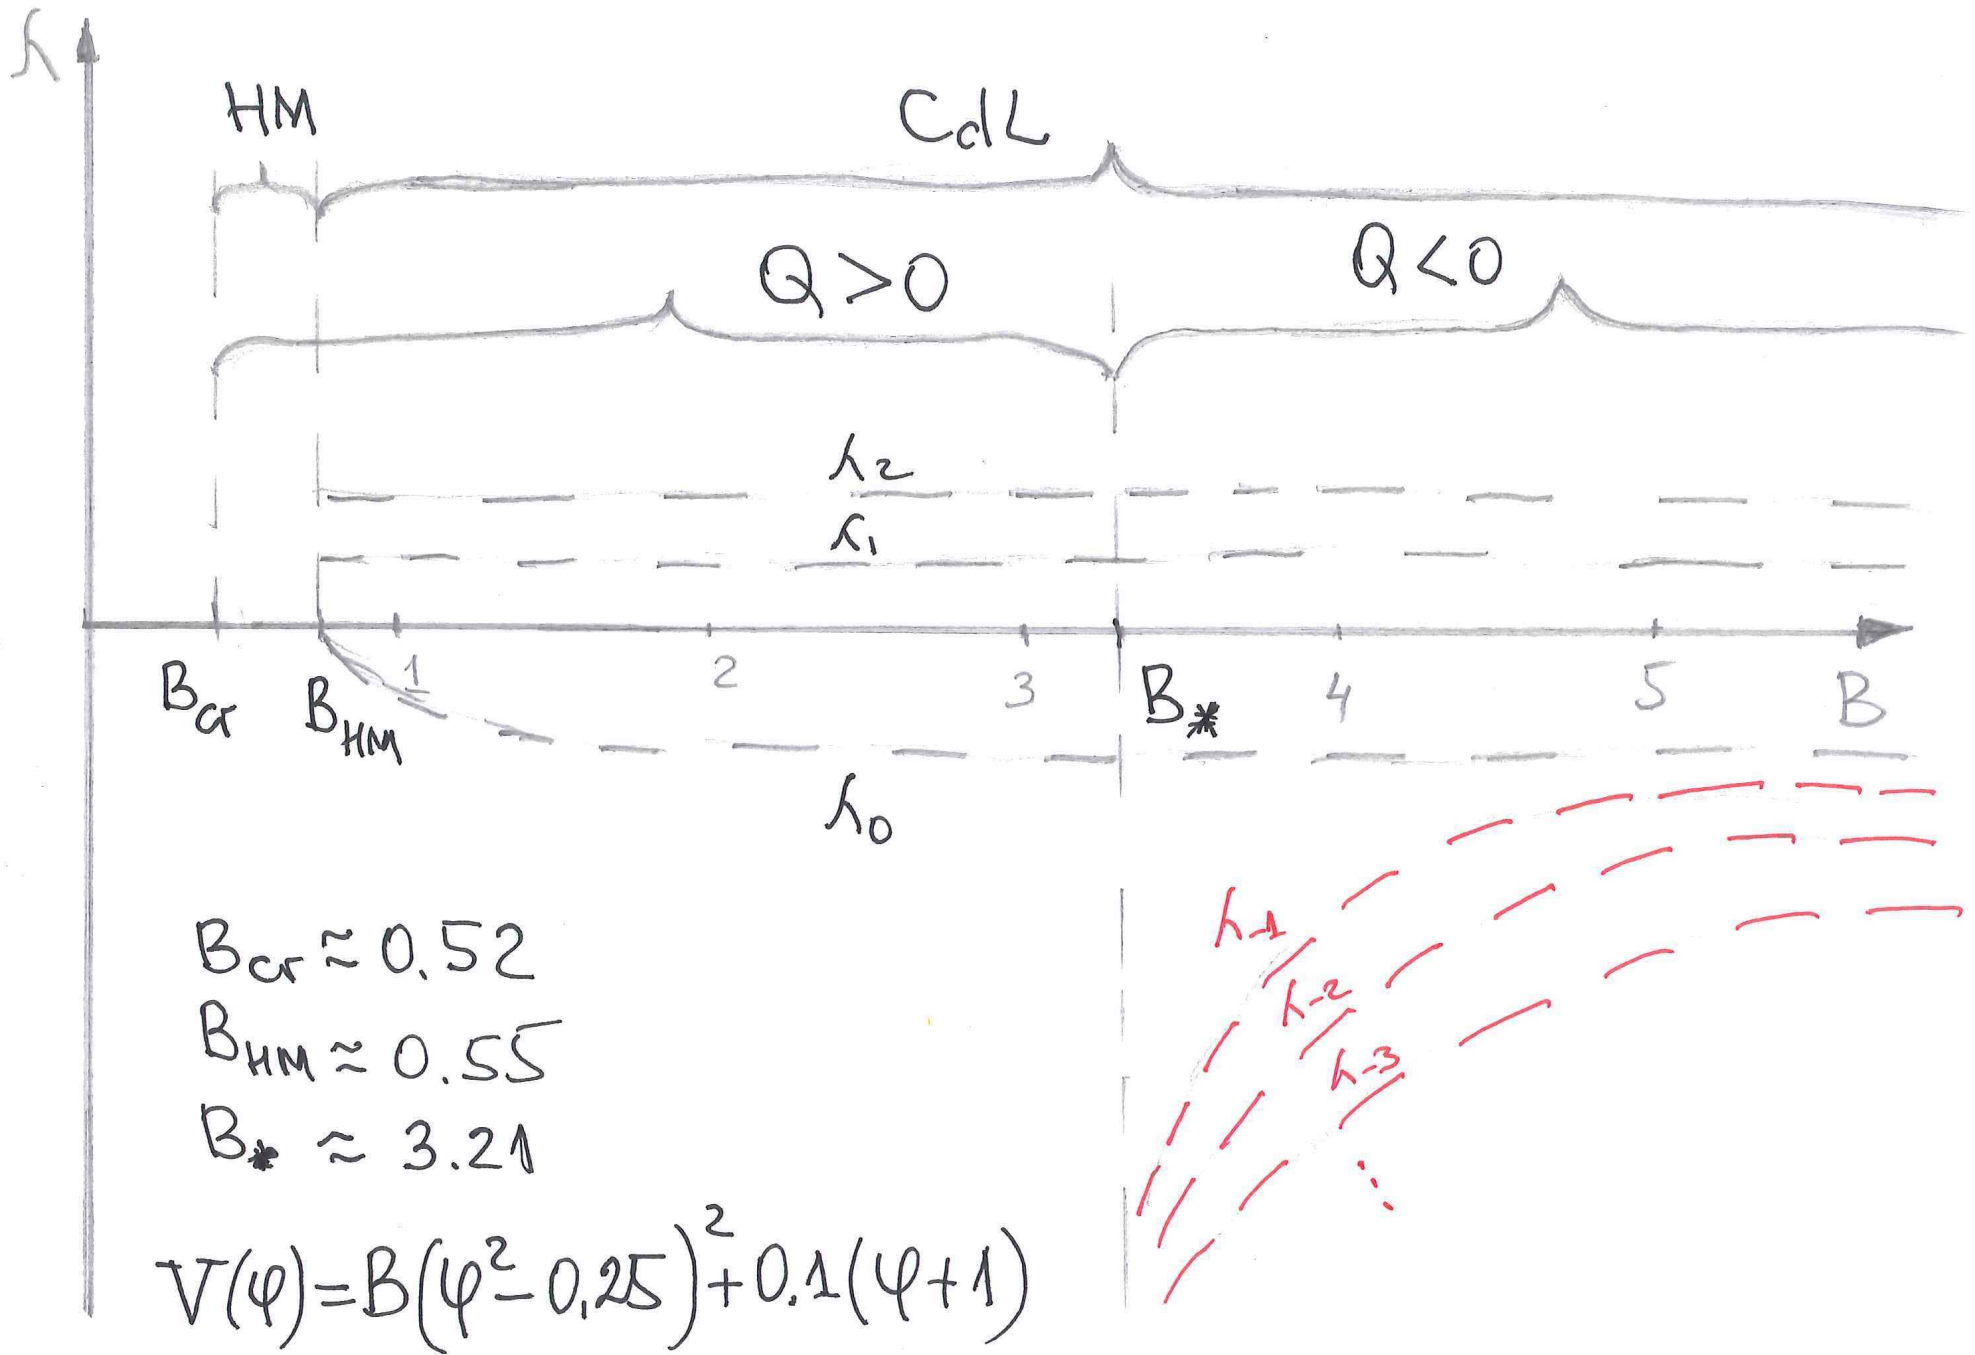 λ
HM
CdL
Q>0
Q<0
λ2
λ1
1 2 3 4 5 B
Bcr BHM B*
λ0
λ-1
λ-2
λ-3
Bcr ≈ 0.52
BHM ≈ 0.55
B* ≈ 3.21
V(φ)=B(φ²-0.25)²+0.1(φ+1)